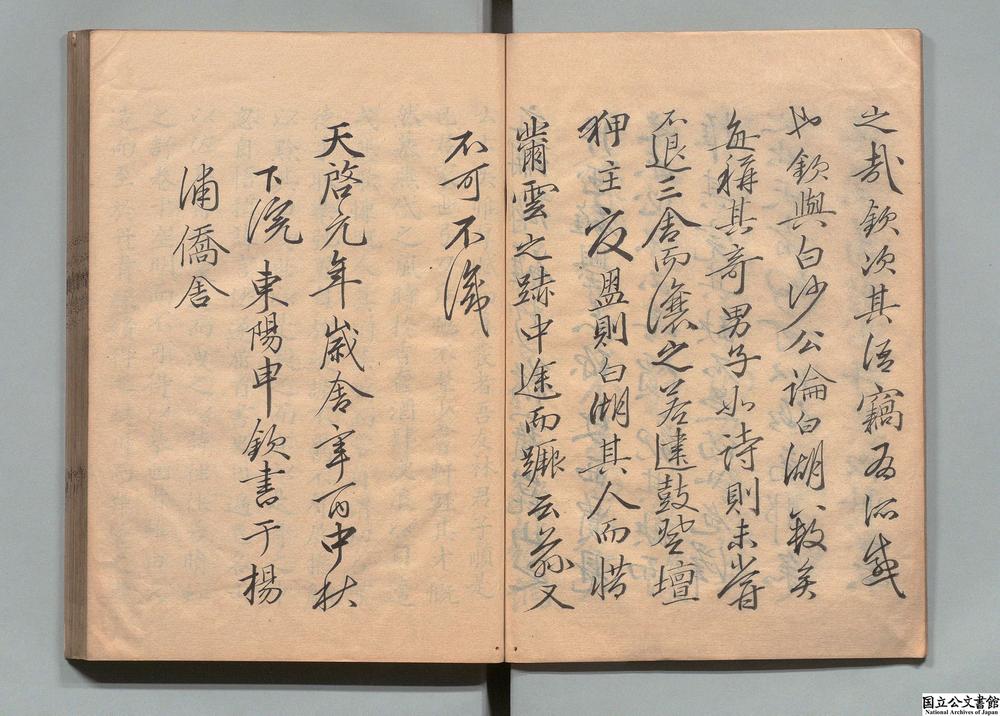 之哉欽次其語竊有所感
也欽與白沙公論白湖數矣
每稱其奇男子如詩則未嘗
不退三舍而讓之若建鼓登壇
狎主夏盟則白湖其人而惜
躡雲之蹟中途而蹶云茲又
不可不識
天啓元年歲舍辛酉中秋
下浣東陽申欽書于楊
浦僑舍
国立公文書館
National Archives of Japan